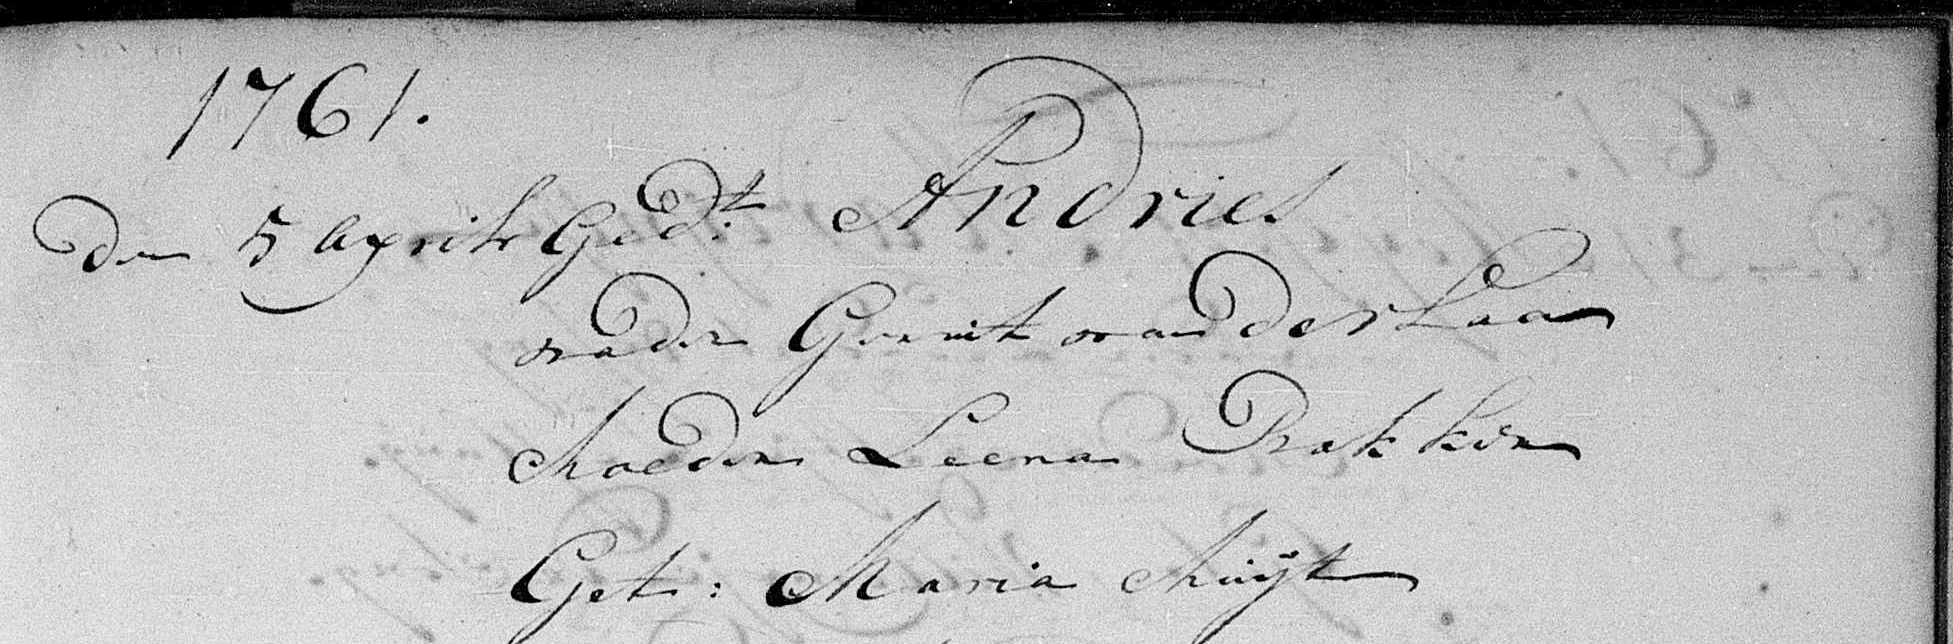 1761.
den 5 April Ged:t Andries
vader Gerrit van der Laan
Moeder Leena Bakker
Get: Maria Muijt